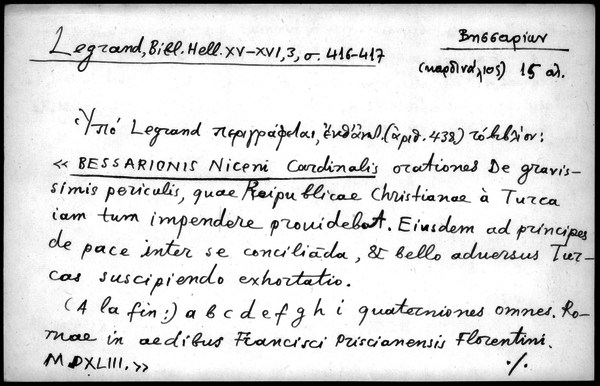 Legrand, Bibl. Hell. XV–XVI, 3, σ. 416-417
Βησσαρίων
(καρδινάλιος) 15 αἰ.
Ὑπό Legrand περιγράφεται, (ἀριθ. 438) τό βιβλίον:
« BESSARIONIS Niceni Cardinalis orationes De gravis–
simis periculis, quae Reipublicae Christianae à Turca
iam tum impendere providebat. Eiusdem ad principes
de pace inter se conciliāda, & bello adversus Tur–
cas suscipiendo exhortatio.
(A la fin:) a b c d e f g h i quaterniones omnes. Ro–
mae in aedibus Francisci Priscianensis Florentini.
MDXLIII. »
./.